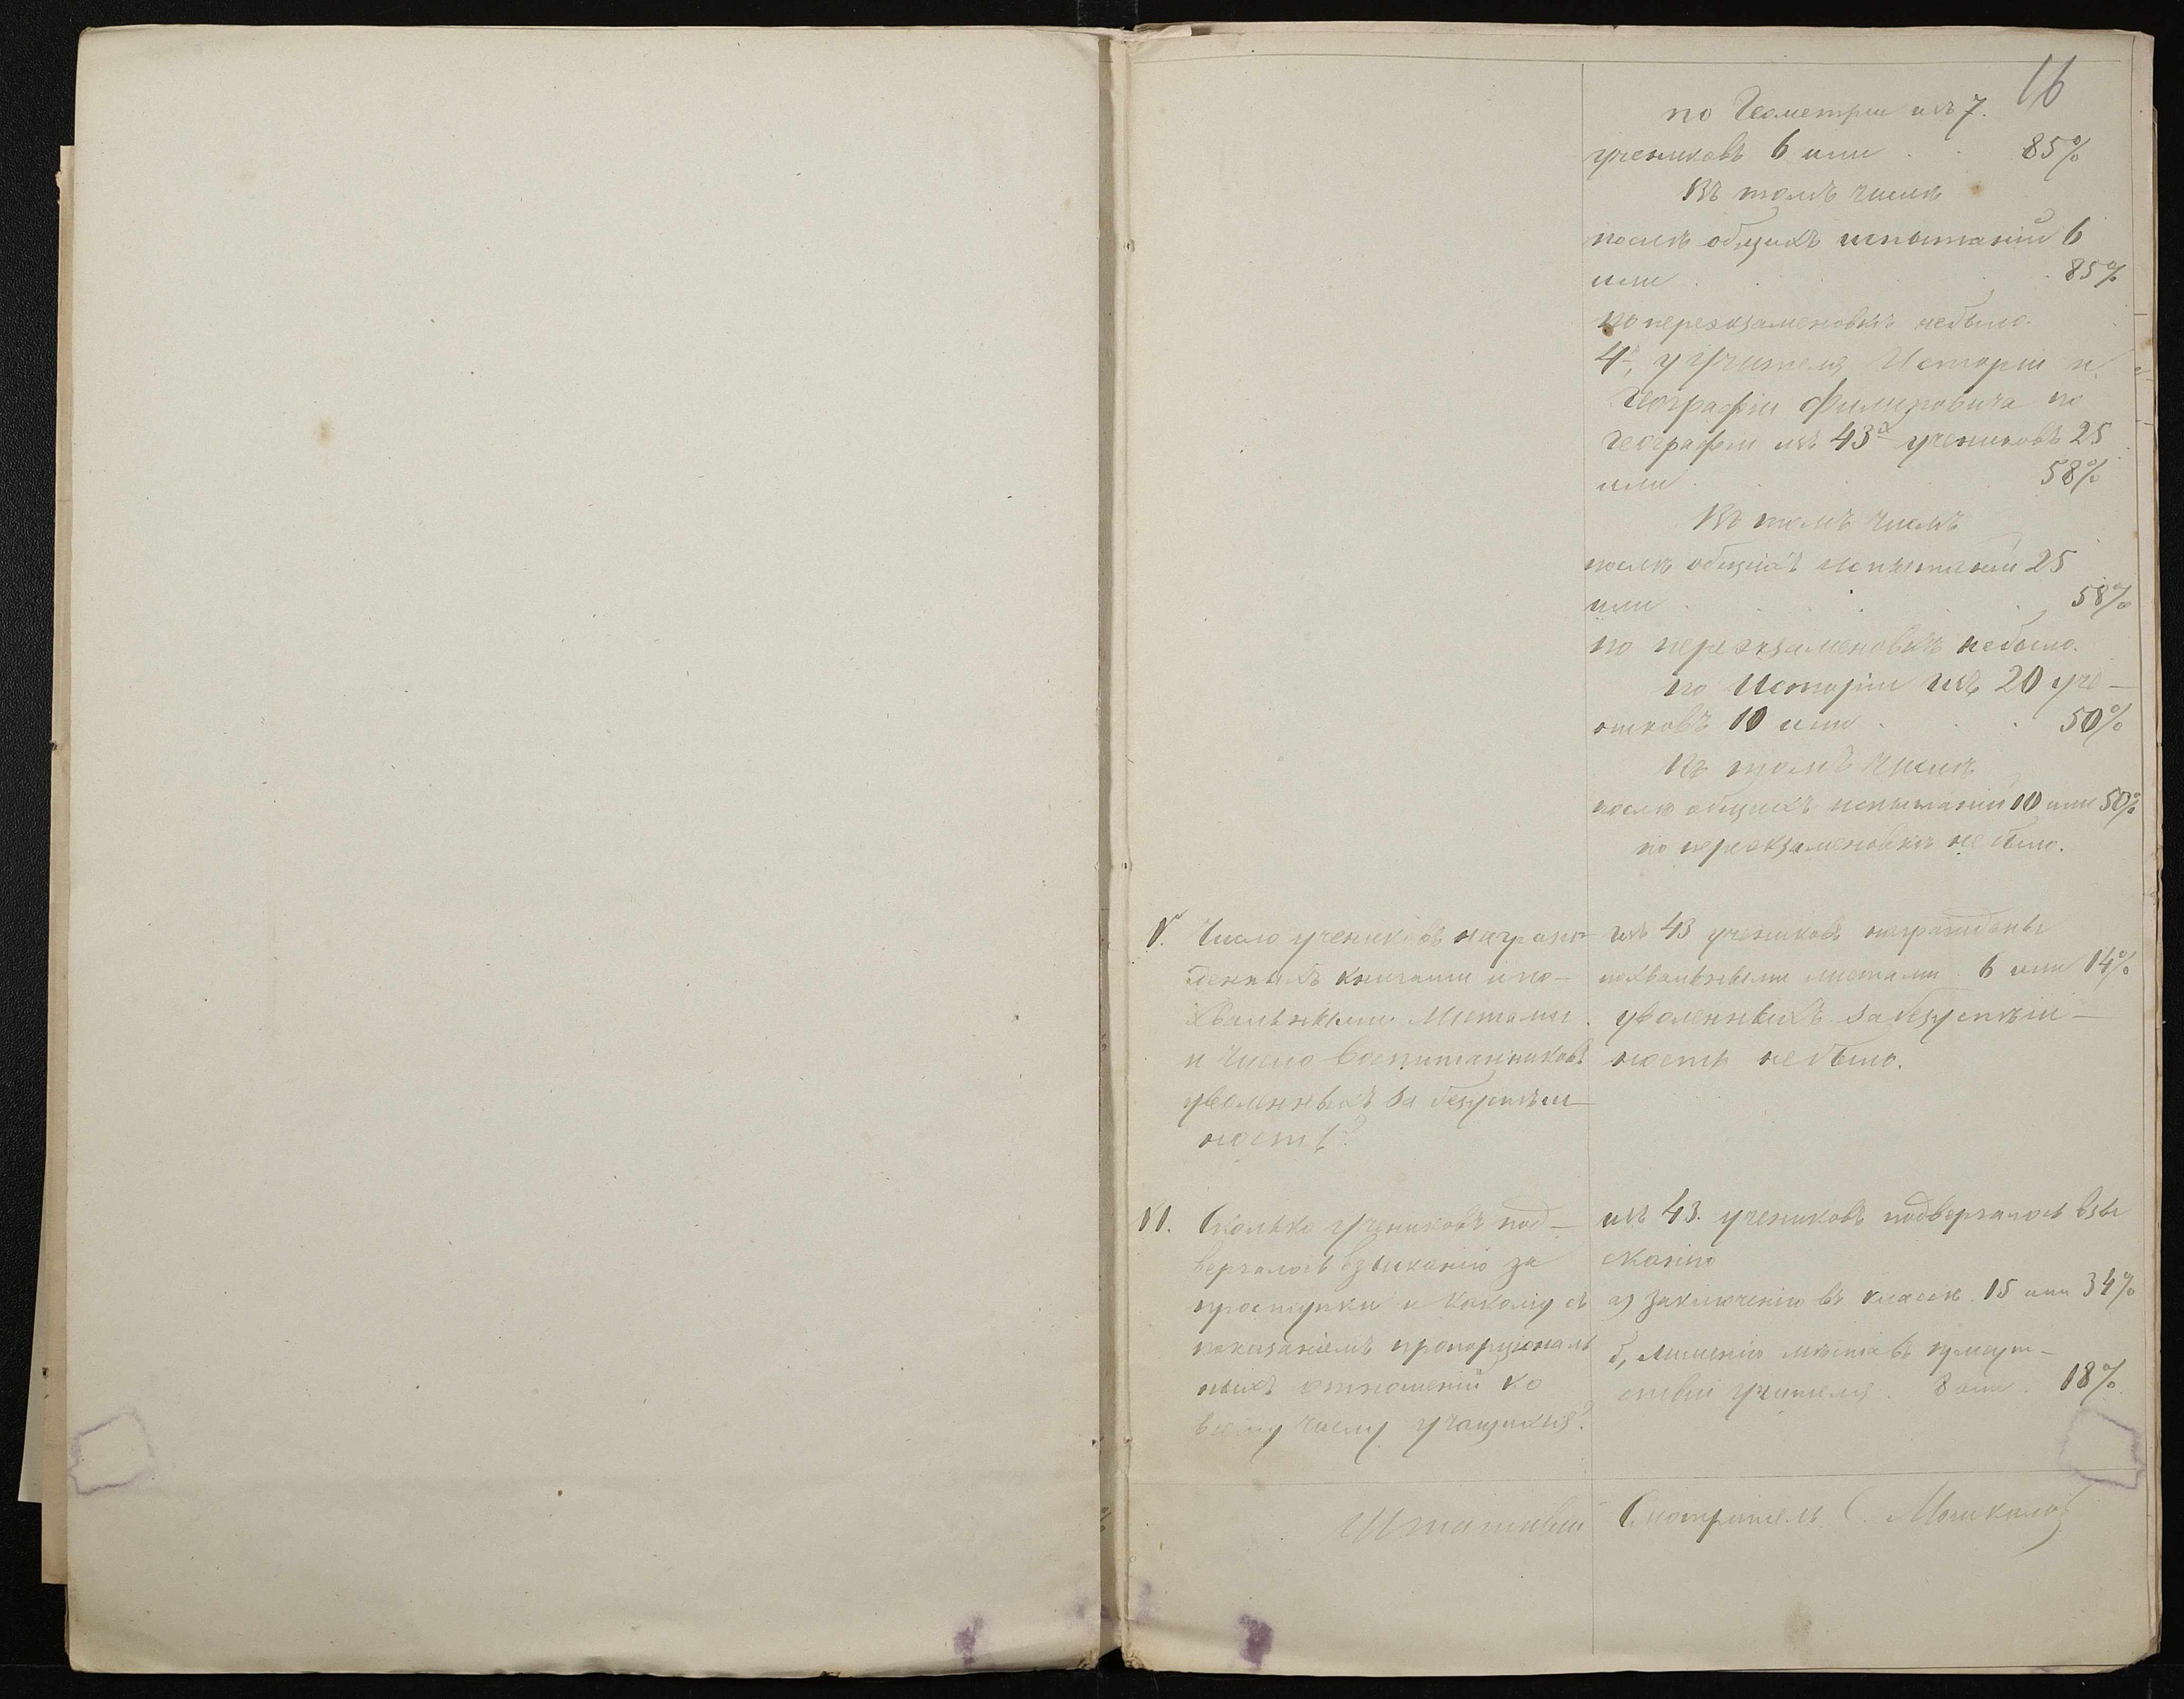 16
по Геометріи изъ 7.
учениковъ 6 или . . 85%
Въ томъ числѣ
послѣ общихъ испытаній 6
или . . . 85%
по переэкзаменовкѣ небыло.
4, у Учителя Исторіи и
Географіи по
Географіи изъ 43х учениковъ 25
или . . . 58%
Въ томъ числѣ
послѣ общихъ испытаній 25
или . . . 58%
по переэкзаменовкѣ небыло.
по Исторіи изъ 20 уче-
никовъ 10 или . . 50%
Въ томъ числѣ
послѣ общихъ испытаній 10 или 50%
по переэкзаменовкѣ не было.
V. Число учениковъ награж-
денныхъ книгами и по-
хвальными листами
и число воспитанниковъ
уволенныхъ за безуспѣш-
ность?
изъ 43 учениковъ награждены
похвальными листами 6 или 14%
уволенныхъ за безуспѣш-
ность небыло.
VI. Сколько учениковъ под-
вергалось взысканію за
проступки и какому съ
показаніемъ пропорціональ
ныхъ отношеній ко
всему числу учащихся?
изъ 43. учениковъ подвергалось взы
сканію
а) заключенію въ классѣ 15 или 34%
б, лишенію мѣста въ присут-
ствіи учителя . 8 или . 18%
Штатный Смотритель С.